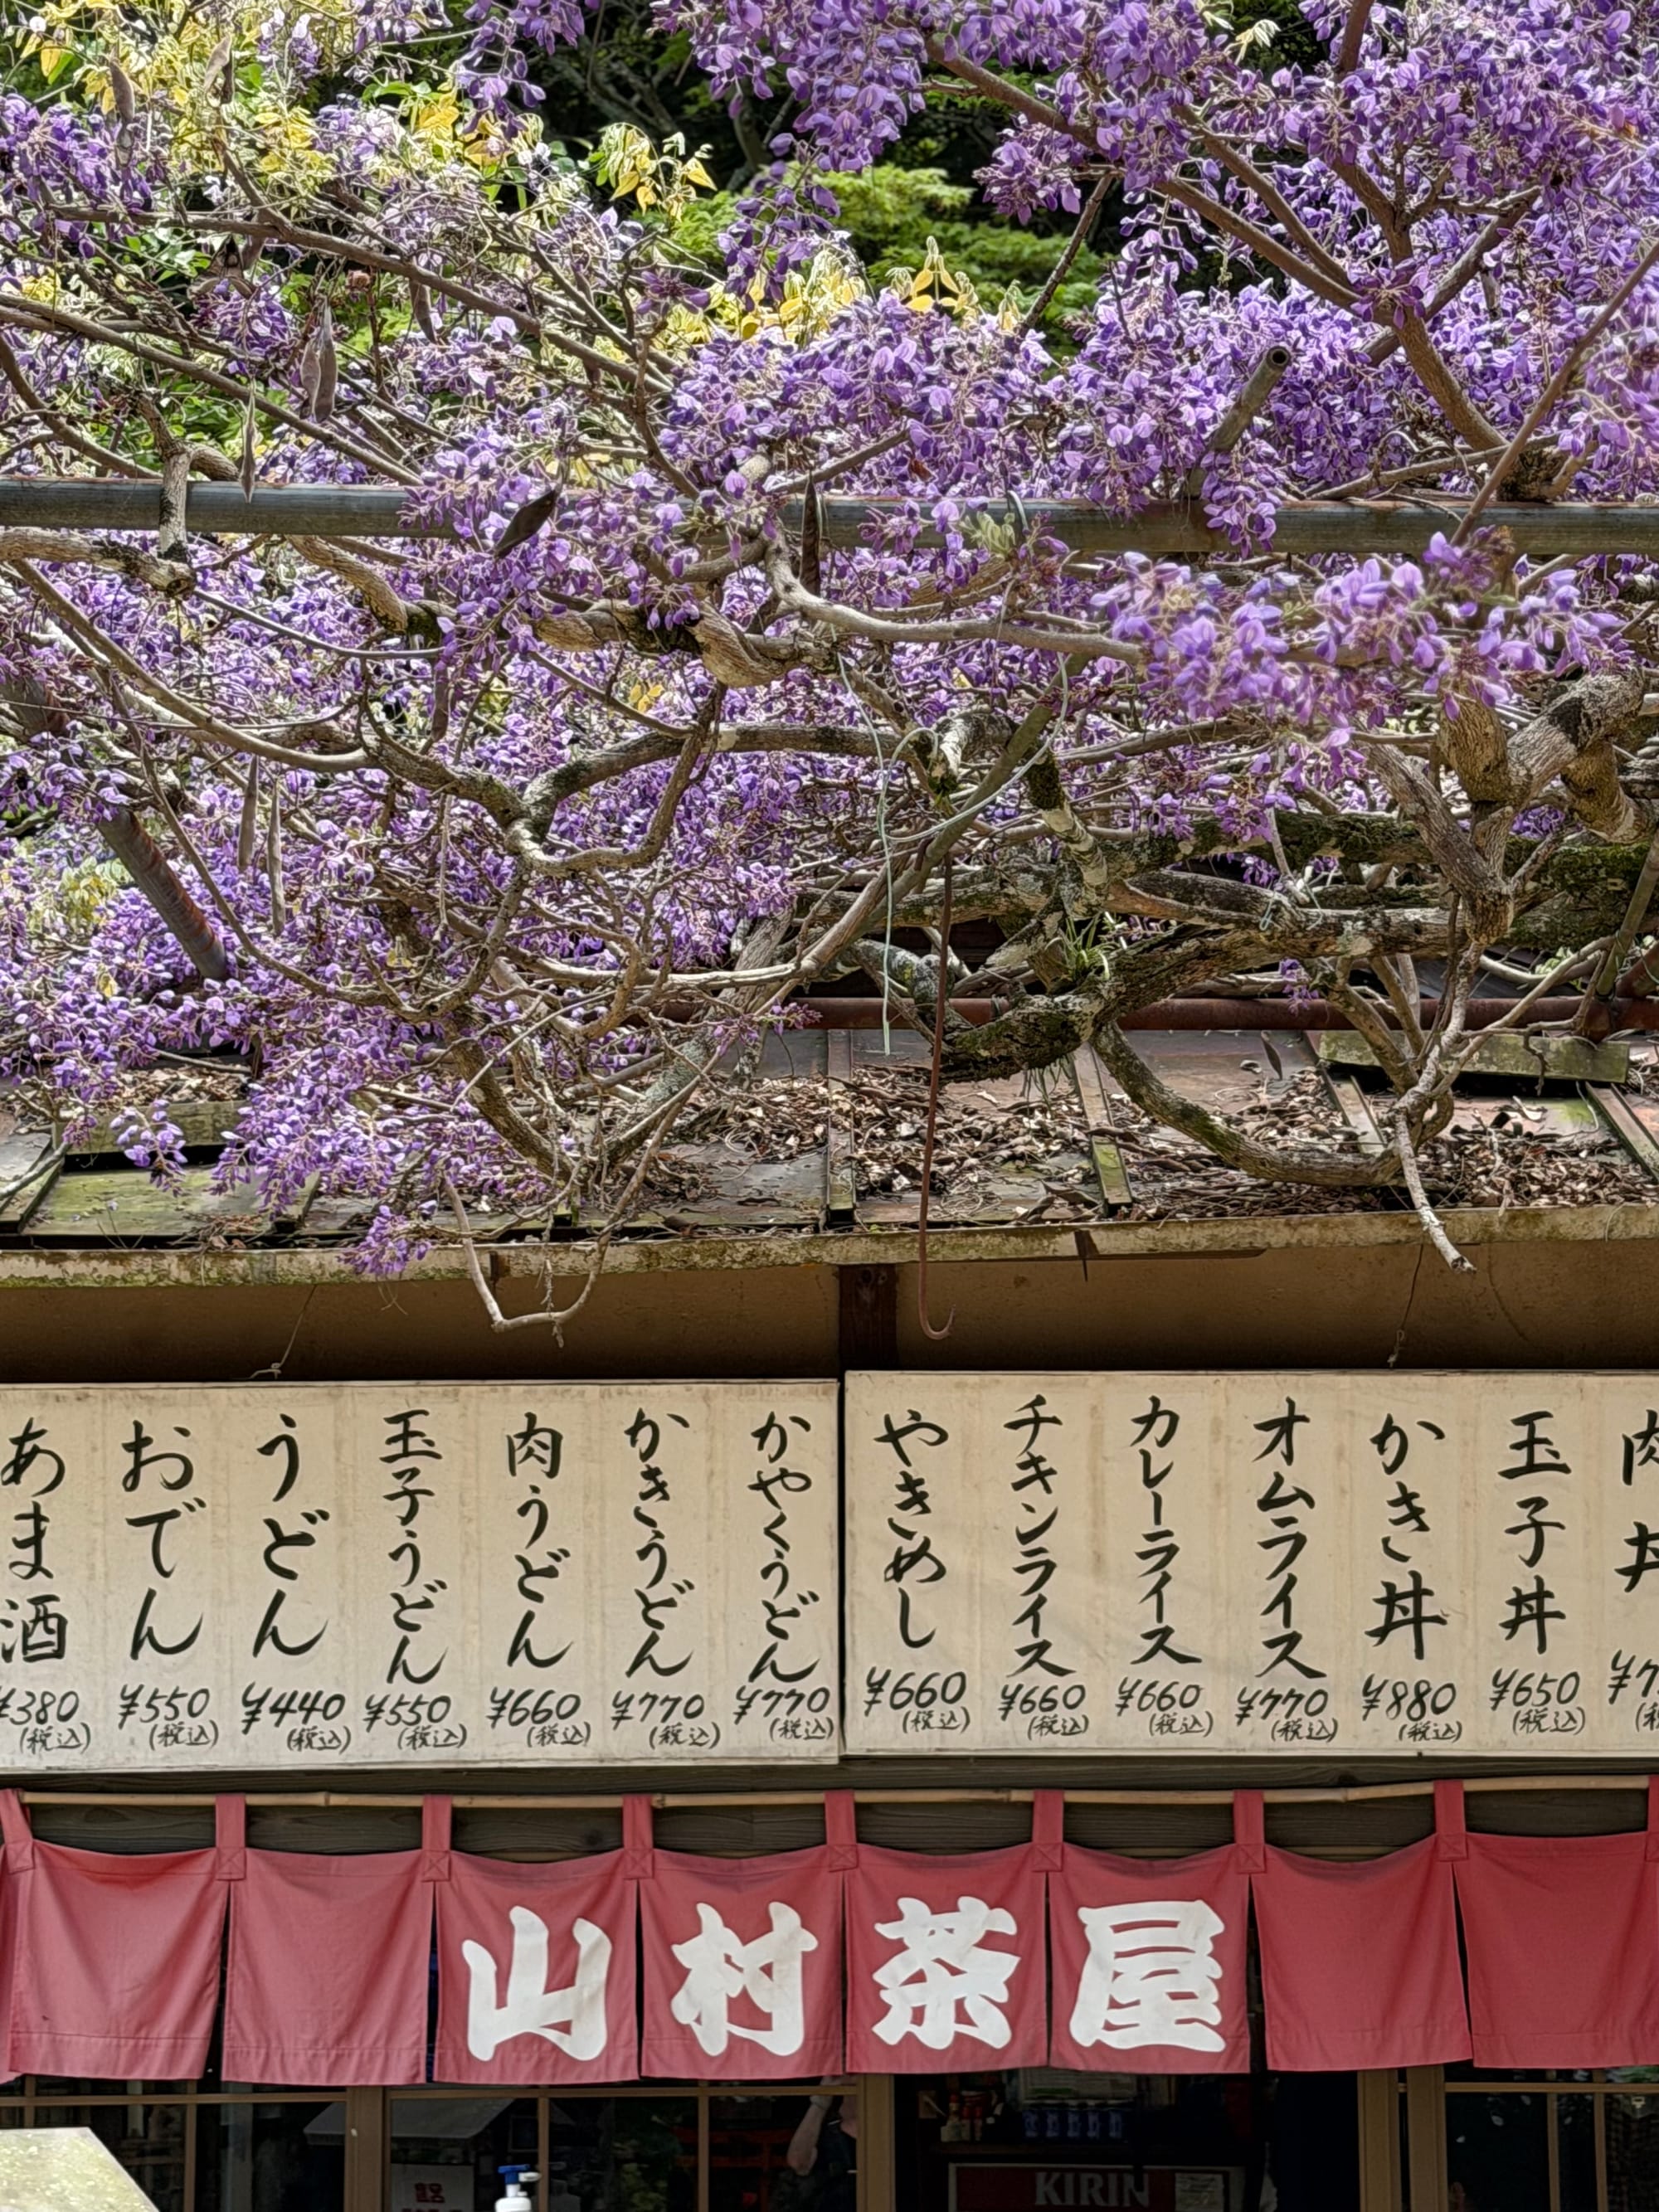 肉丼
玉子丼
¥650
(税込)
かき丼
¥880
(税込)
オムライス
¥770
(税込)
カレーライス
¥660
(税込)
チキンライス
¥660
(税込)
やきめし
¥660
(税込)
かやくうどん
¥770
(税込)
かきうどん
¥770
(税込)
肉うどん
¥660
(税込)
玉子うどん
¥550
(税込)
うどん
¥440
(税込)
おでん
¥550
(税込)
あま酒
¥380
(税込)
山村茶屋
KIRIN